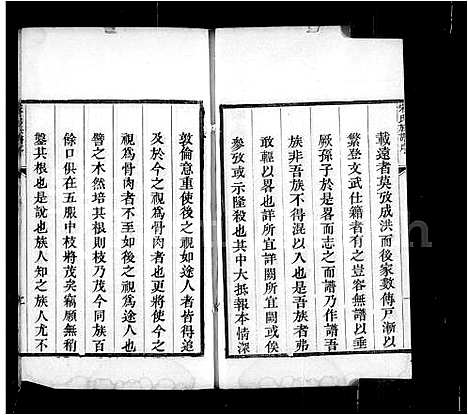 載遠者莫攷成洪而後家數傳戸漸以
繁登文武仕籍者有之豈容無譜以垂
厥孫子於是畧而志之而譜乃作譜吾
族非吾族不得混以入也是吾族者弗
敢輕以畧也詳所宜詳闕所宜闕或俟
參攷或示隆殺也其中大抵報本情深
敦倫意重使後之視如途人者皆得追
及於今之視爲骨肉者也更恐今之
視爲骨肉者不至如後之視爲途人也
譬之木然培其根則枝乃茂今同族百
餘口具在五服中枝將茂矣竊願無稍
鏨其根也是說也族人知之族人尤不